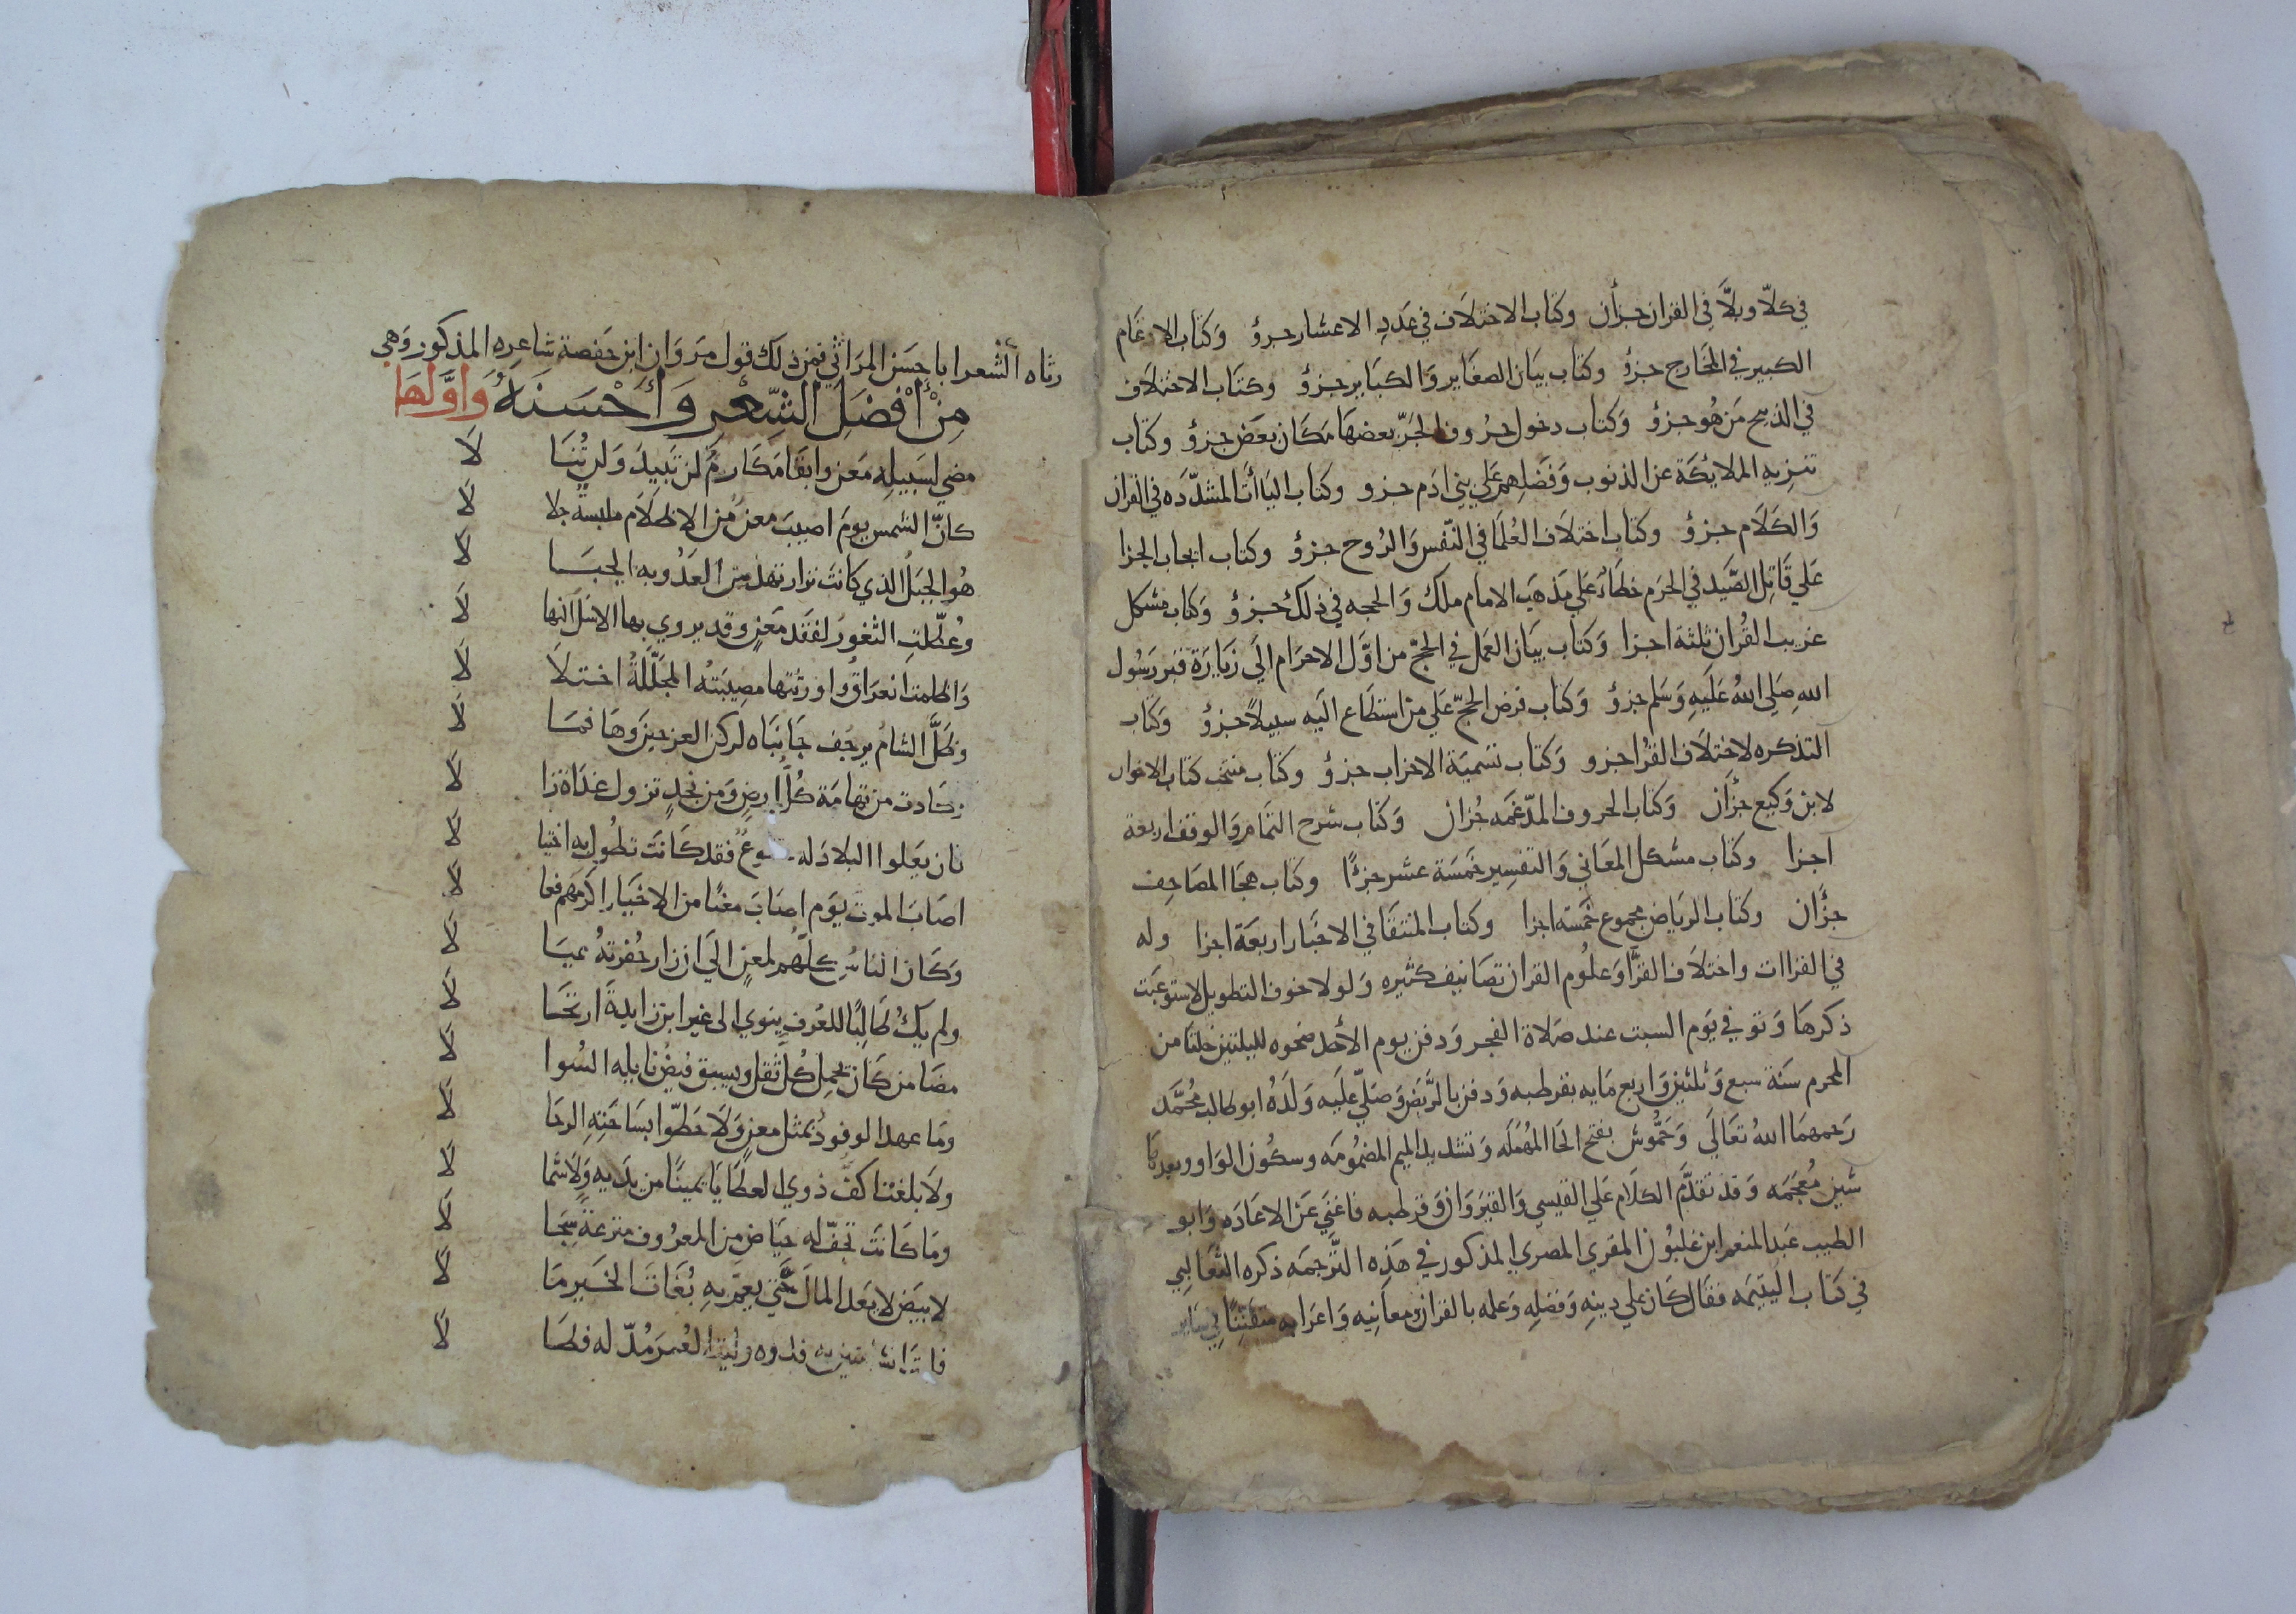 في كلّا وبلَّا في القران جزأن وكتاب الاختلاف في عَدَدِ الاعشار جزؤ وَكتاب الادغام
الكبير في المخارج جزؤ وكتاب بيَان الصغَاير وَالكبَاير جزؤ وكتَاب الاختلاف
في الذبيح مَن هُو جزؤ وَكتاب دخول حرُوف الجَرّ بعضهَا مَكان بعَض جزؤ وكتاب
تنزيه الملايكَة عن الذنوب وَفضلِهم عَلي بني ادَم جزو وكتاب اليَاأت المشدّدَه في القران
وَالكَلَام جزؤ وكتاب اختلَاف العُلمَا في النّفس وَالرُوح جزؤ وكتاب ايجاب الجزا
عَلي قَاتِل الصَّيَد في الحرَم خطأً عَلي مَذهَب الامَام ملك وَالحجه في ذلك جزؤ وَكتاب مشكل
غريب القُران ثلثة اجزا وَكتَاب بيَان العَمل في الحجّ من اوَّل الاحرَام الَي زيَارَة قبر رَسُول
اللهِ صَلي اللهُ عَلَيهِ وَسَلم جزؤ وَكتاب فرض الحجّ عَلي من استطَاع اليَه سبيلاً جزؤ وَكتَاب
التذكره لاختلَاف القُرا جزو وَكتاب تسميَة الاحزاب جزؤ وكتَاب منتخب كتاب الاخوان
لابن وَكيع جزأن وَكتاب الحروف المدّغمَه جُزان وَكتَاب شرح التمَام وَالوقف اربعة
اجزا وكتاب مشكل المعَاني وَالتفسير خَمسَة عشر جزءًا وكتاب هجَا المصَاحِف
جزؤان وكتاب الريَاض مجموع خَمسَه اجزا وكتاب المنتقَا في الاخبَار اربعَة اجزا وله
في القراات واختلَاف القرَّا وَعلُوم القران تصَانيف كثيره وَلولا خوف التطويل لاستوعبَت
ذكرهَا وَتوفي يَوم السبت عند صَلاة الفجر وَدفن يوم الأحَد ضحوه لليلتين خلتَا من
المحرم سَنَة سبع وَثلثين وَاربع مَايه بقرطبه وَدفن بالرَّبَض وَصَلّي عَلَيه وَلَدُهُ ابو طالب مُحمَّد
رَحمهمَا اللهُ تعَالَي وَحَمُّوش بفتح الحَا المهُمَله وَتشديد الميم المضمُومَه وسكُون الوَاو وبعدهَا
شين مُعجَمه وَقد تقدَّم الكَلَام عَلي القيسي وَالقيرَوَان وَقرطبه فاغني عَن الاعَادَه وَابو
الطيب عَبد المنعم ابن غلبُون المقري المصري المذكور في هَذِه التَّرجمَه ذكره الثعَالبِي
في كتَاب اليتيمَه فقَال كَان عَلي دينِهِ وَفضلِهِ وَعلمه بالقران ومعَانِيه وَاعرَابه متفَنّنًا في سَاير
رثاه الشعرا باحسَن المرَاثي فمن ذلك قول مرَوَان ابن حَفصة شاعره المذكور وَهي
مِنْ أَفْضَلِ الشِّعْرِ وَأَحْسَنَهُ وَاوَّلهَا
مضي لسَبيلهِ مَعن وابقَا مَكَارمً لن تَبيدَ وَلن تُنَا لَا
كانّ الشمس يومَ اصيبَ معن من الاظلَام ملبسةً جلا لا
هُو الجبَلُ الذي كانَت نزار تهدّ من العَدُو به الجبَا لا
وعُطّلتِ الثغورَ لفَقد مَعنٍ وقد يروي بها الاسَلَ انها لا
وَاظلمت العرَاقُ واورثتها مصِيبَتُه المجَلّلَةُ اختلَا لا
وظَلَّ الشامُ يرجف جَانبَاه لركن العز حين وَهَا فمَا لا
وكادت من تهامَة كُلُّ ارضٍ وَمن نجدٍ تزول غدَاة زا لا
فان يَعلوا البلادَ له خشوعٌ فقد كَانَت تطُول به اختيا لا
اصَابَ الموت يوَم اصَابَ معنًا من الاخيَار اكرَمهَم فعا لا
وَكَان النَاسُ كلّهُم لمعن الَي ان زار حُفرتهُ عيَا لا
ولم يكُ طالِبًا للعُرفِ ينوي الي غير ابن زايدةَ ارتحَا لا
مضَا من كَان يحمِل كُلّ ثقلٍ ويسبق فيضُ نايله السُوا لا
ومَا عهد الوفودُ بمثل معنٍ وَلَا حَطّوا بسَاحَتِهِ الرحَا لا
ولَا بلغت اكفُّ ذوي العطَايَا يمينًا من يدَيه وَلَا شما لا
ومَا كَانَت تجفّ له حيَاض من المعرُوف مترعَةً سِجَا لا
لابيَض لا يعَد المالَ حَتّي يعمّ بهِ بُغَاةَ الخيَر مَا لا
العُمرَ مُدّ له فطَا لا